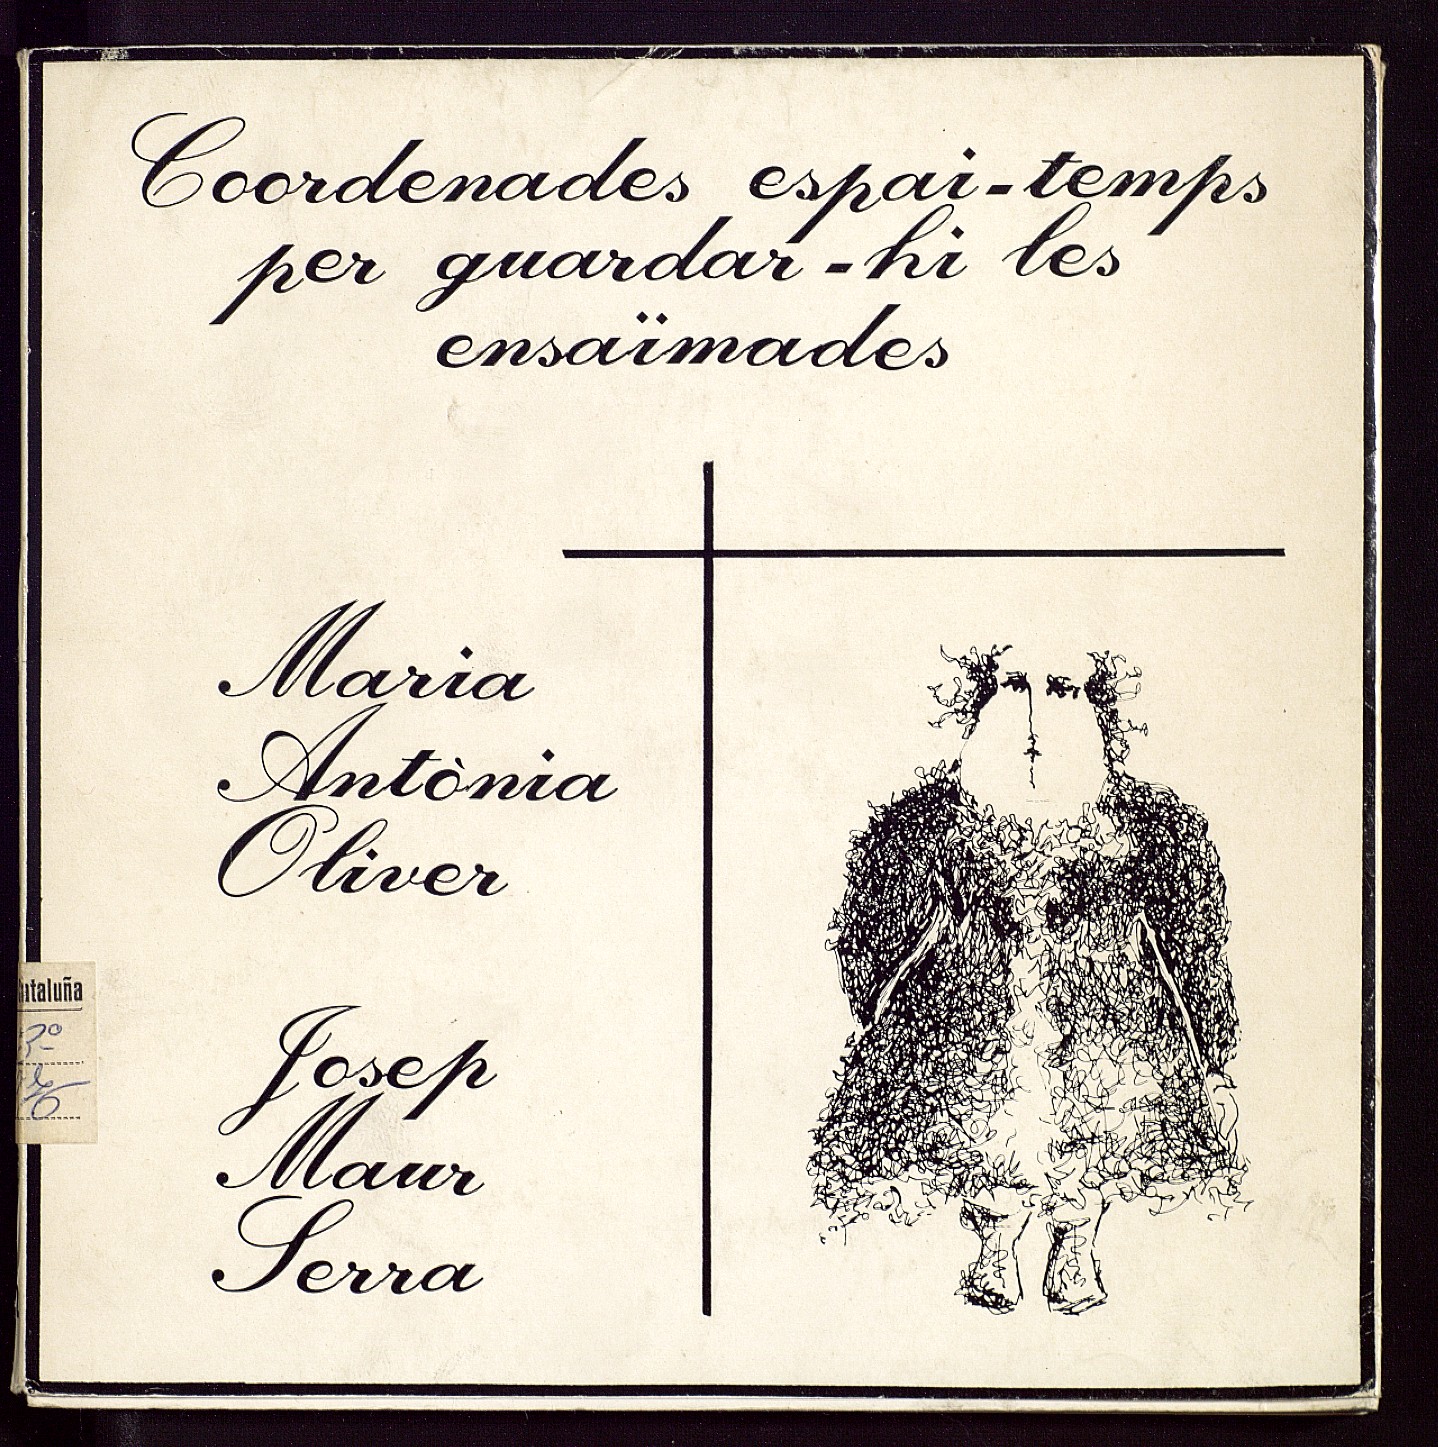 Coordenades espai-temps
per guardar-hi les
ensaïmades
Maria
Antònia
Oliver
Josep
Maur
Serra
ataluña